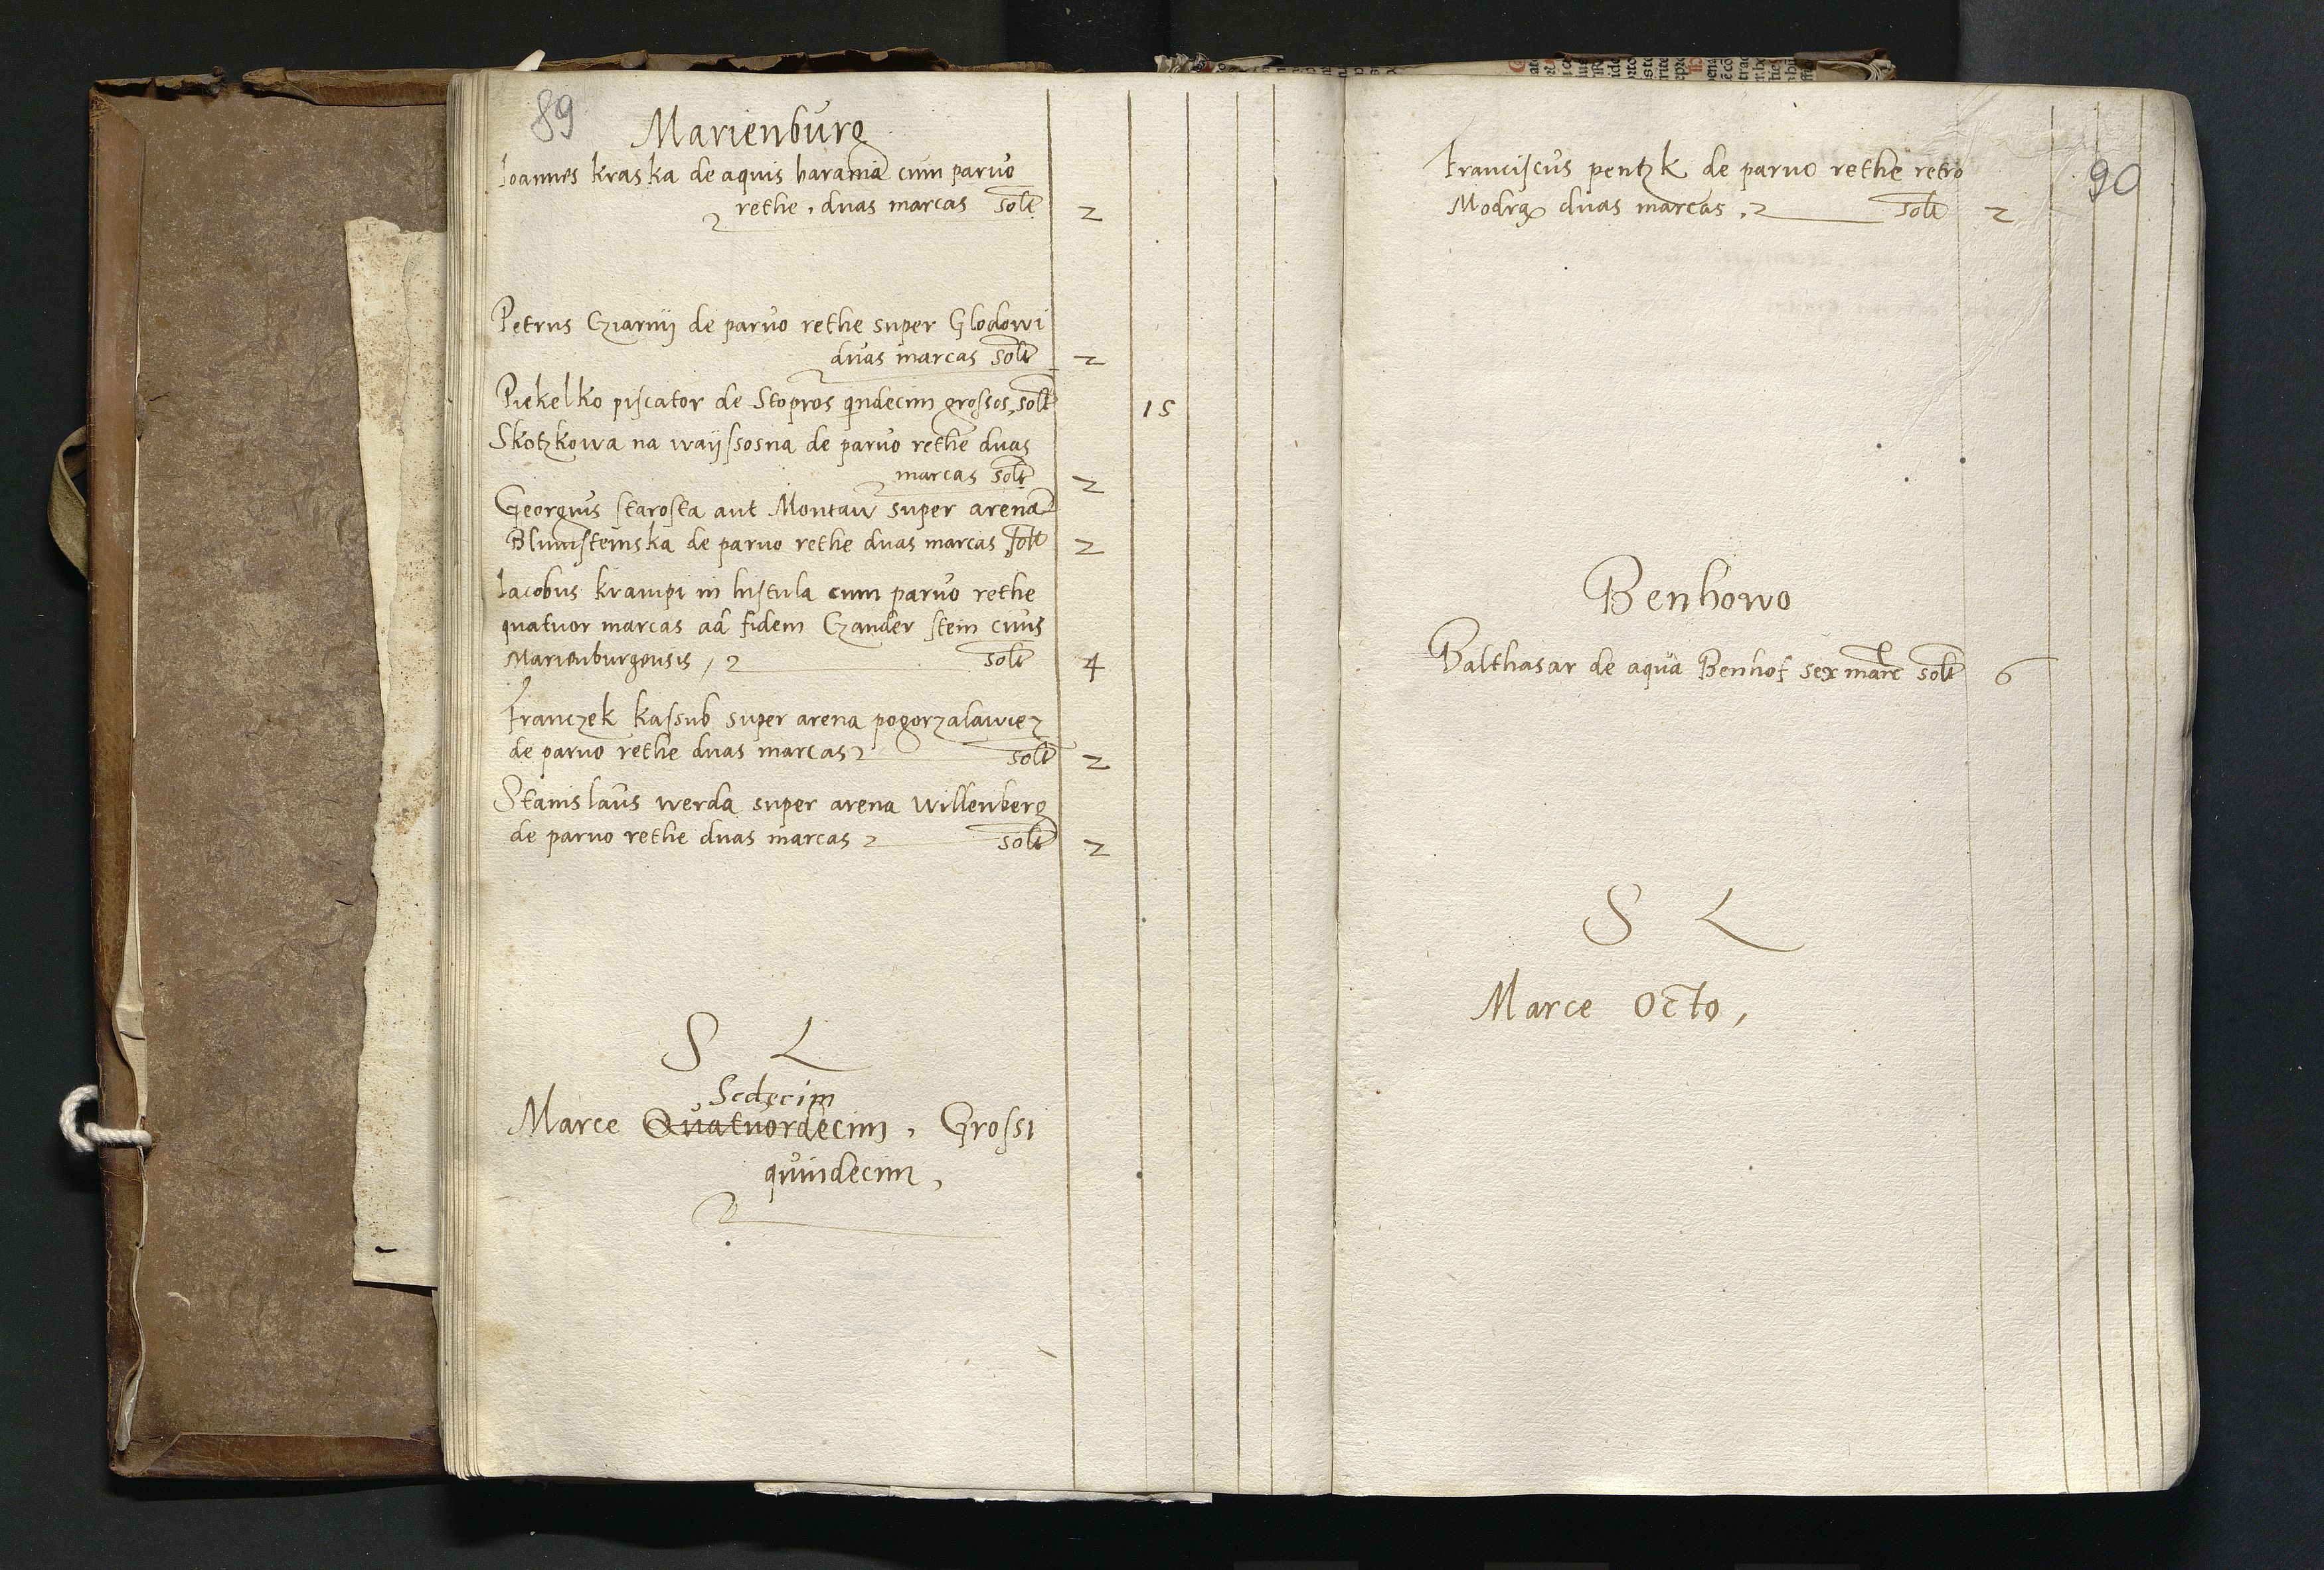 89
Marienburg
Ioannes kraska de aquis barania cum paruo
rethe, duas marcas solt 2
Petrus Cziarnij de paruo rethe super Glodowi
duas marcas solt 2
Piekelko piscator de Stopros qndecim grossos, solt 15
Skotzkowa na waijssosna de paruo rethe duas
marcas solt 2
Georgius starosta aut Montaw super arena
Blumsteinska de paruo rethe duas marcas solt 2
Iacobus krampi in histula cum paruo rethe
quatuor marcas ad fidem Czander stein ciuis
Marienburgensis, solt 4
Franczek kassub super arena pogorzalawie
de paruo rethe duas marcas solt 2
Stanislaus werda super arena willenberg
de paruo rethe duas marcas solt 2
S L
Sedecim
Marce Quatuordecim, Grossi
quindecim,
90
Franciscus pentzk de paruo rethe retro
Modra duas marcas, solt 2
Benhowo
Balthasar de aqua Benhof sex marc solt 6
S L
Marce Octo,